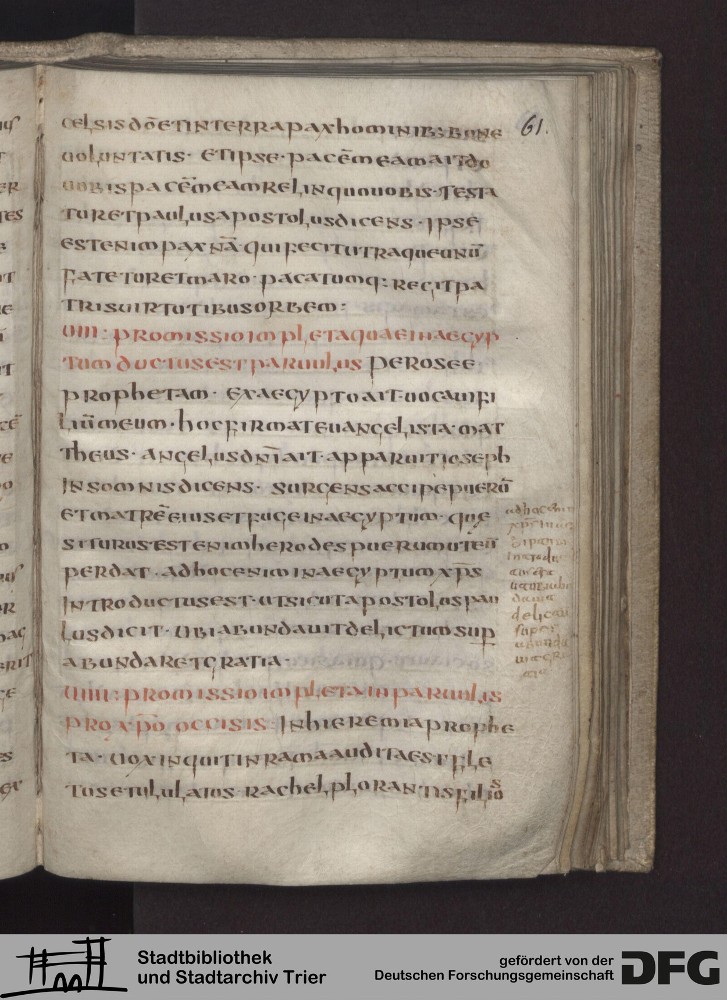 61.
celsis dō et in terra pax hominib: bone
uoluntatis · et ipse · pacēm eam ait do
uobis pacēm eam relinquo uobis · testa
tur et paulus apostolus dicens · ipse
est enim pax nā qui fecit utraque unū
fatetur et maro · pacatumq: regit pa
triis uirtutibus orbem :
uiii : promissio impleta quae in aegyp
tum ductus est paruulus per osee
prophetam · ex aegypto ait uocaui fi
liū meum · hoc firmat euangelista mat
theus · angelus dnī ait apparuit ioseph
in somnis dicens · surgens accipe puerū
et matrē eius et fuge in aegyptum · que
siturus est enim herodes puerum ut eū
perdat · ad hoc enim in aegyptum xps
introductus est · ut sicut apostolus pau
lus dicit · ubi abundauit delictum sup
abundaret gratia ·
uiiii : promissio impleta in paruulis
pro xpō occisis · in hieremia prophe
ta · uox inquit in rama audita est fle
tus et ululatus · rachel plorantis filios
ad hoc
delica
super
abunda
Stadtbibliothek
und Stadtarchiv Trier
gefördert von der
Deutschen Forschungsgemeinschaft
DFG